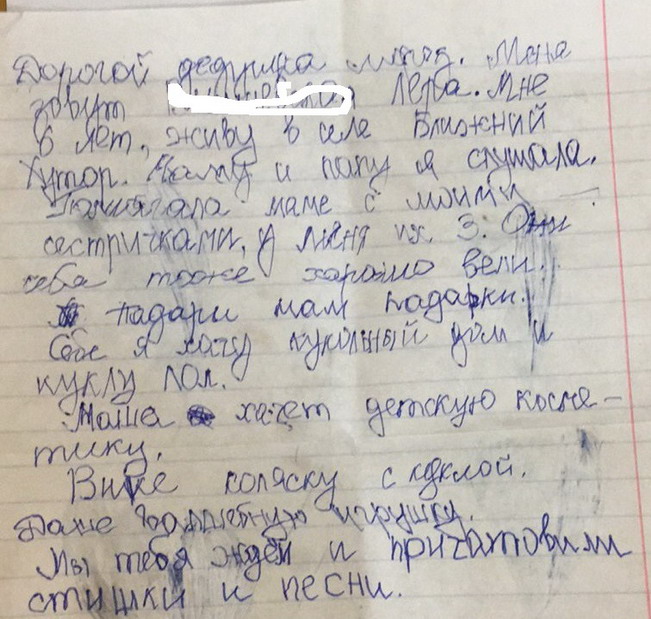 Дорогой дедушка мароз. Меня
зовут Лера. Мне
6 лет, живу в селе Ближний
Хутор. Маму и папу я слушала.
Памагала маме с моими
сестричками, у меня их 3. Они
себа тоже харашо вели.
падари нам падарки.
Себе я хачу кукольный дом и
куклу лол.
Маша хачет детскую косме-
тику.
Вике коляску с куклой.
Даше
игрушку.
Мы тебя ждем и пригатовили
стишки и песни.